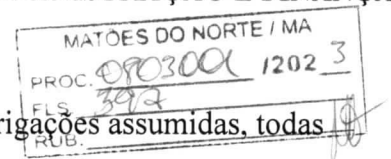 MATÕES DO NORTE / MA
PROC. 0803001 /2023
FLS. 397
rigações assumidas, todas
RUB.